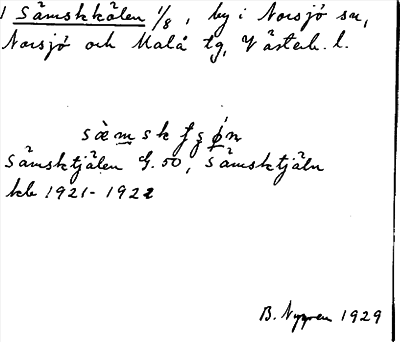 1 Sämskkälen 1/8, by i Norsjö sn,
Norsjö och Malå tg, Västerb. l.
Sämsktjälen G. 50, Sämsktjäln
kb 1921-1922
B. Nygren 1929